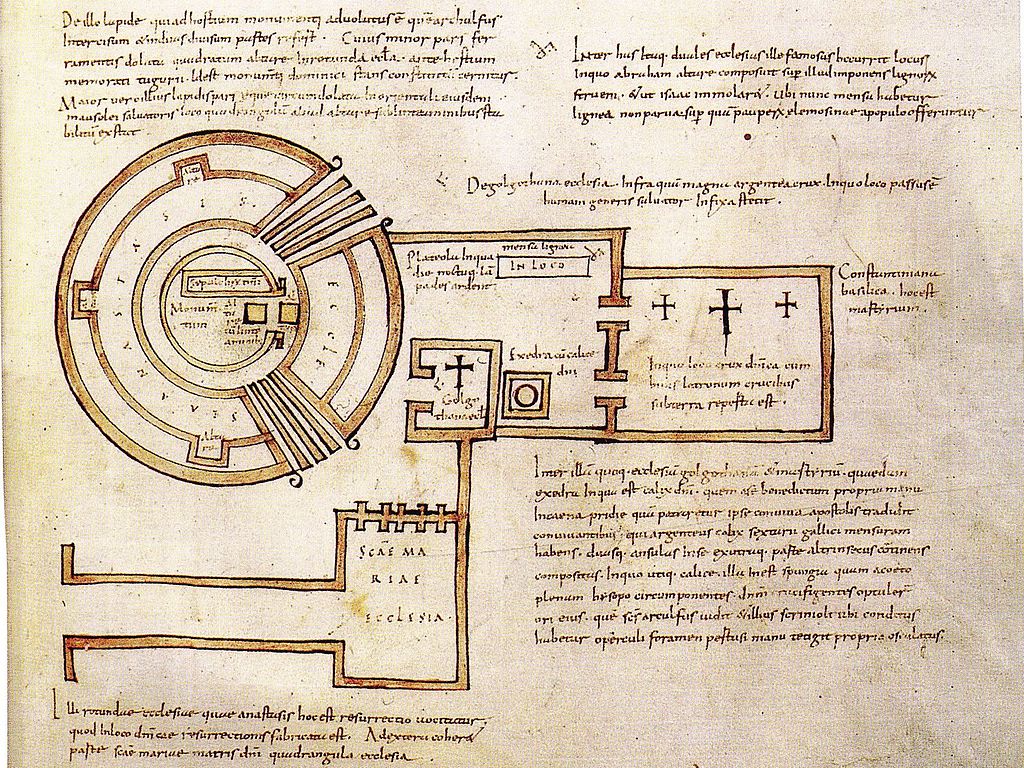 De illo lapide qui ad hostium monumenti advolutus ē quē arculfus
intercisum & in duas divisum partes refert. Cuius minor pars fer
ramentis dolata quadratum altare in rotunda ecla. ante hostium
memorati tugurii. id est monumti dominici stans constitutū cernitur.
Maior vero illius lapidis pars aeque circumdolata in orientali eiusdem
mausolei salvatoris loco quadrangulū aliud altare sub linteaminibus sta
bilitū exstat.
Inter has itaq. duales ecclesias ille famosus occurrit locus
in quo abraham altare composuit sup illud imponens lignorx
struem. &ut isaac immolar&. Ubi nunc mensa habetur
lignea non parva. sup quā pauperx elemosinae a populo offeruntur
De golgothana ecclesia. Infra quā magna argentea crux. In quo loco passus ē
humani generis salvator infixa stetit.
Altare
SĪS
ANASTA
ECCLE
Sepulchrū dni
Monumtum
Altare
Plateola in qua
die noctuq. lā
pades ardent
mensa lignea
IN LOCO
Constantiniana
basilica. hoc est
martyrium.
Exedra cū calice
dni
Golgo
thana ecl
In quo loco crux dnica cum
binis latronum crucibus
sub terra reperta est.
SCAE MA
RIAE
ECCLESIA.
Inter illā quoq. ecclesiā golgothana & martyriū. quaedam
exedra in qua est calix dni. quem a se benedictum propria manu
in caena pridie quā pateretur ipse conviva apostolis tradidit
convivantibus. qui argenteus calix sextarii gallici mensuram
habens. duasq. ansulas in se ex utraq. parte altrinsecus cōtinens
compositus. In quo utiq. calice. illa inest spungia quam aceto
plenum hysopo circumponentes. dnm crucifigentes optuler
ori eius. quē scs arculfus vidit & illius scrinioli ubi conditus
habetur operculi foramen pertusi manu tetigit propria osculatus.
Illi rotundae ecclesiae quae anastasis hoc est resurrectio vocitatur,
quod in loco dnicae resurrectionis fabricata est. A dextera coher&
parte scae mariae matris dni quadrangula ecclesia